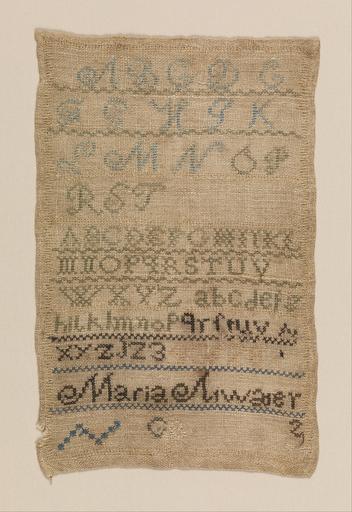 A B C D E
F G H I K
L M N O P
R S T
A B C D E F G H I K L
M N O P Q R S T U V
W X Y Z a b c d e f g
h i k l m n o p q r s t u v w
x y z 1 2 3
Maria Atwater